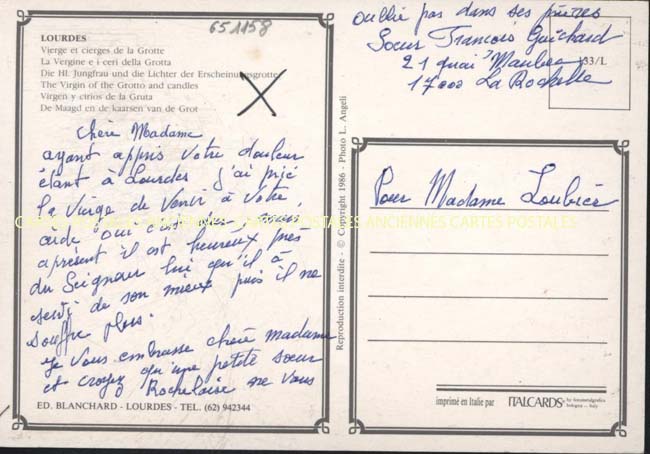 651158
LOURDES
Vierge et cierges de la Grotte
La Vergine e i ceri della Grotta
Die Hl. Jungfrau und die Lichter der Erscheinungsgrotte
The Virgin of the Grotto and candles
Virgen y cirios de la Gruta
De Maagd en de kaarsen van de Grot
chère Madame
ayant appris votre douleur
étant à Lourdes j'ai prié
la Vierge de venir à votre
aide, oui c'est
aprésent il est heureux près
du Seigneur lui qu'il à
servi de son mieux puis il ne
souffre plus.
je vous embrasse chère madame
et croyez qu'une petite sœur
Rochelaise ne vous
oublie pas dans ses prières
Soeur François Guichard
21 quai Maubec
17000 La Rochelle
133/L
Pour Madame Loubier
CARTES POSTALES ANCIENNES CARTES POSTALES
Reproduction interdite - © Copyright 1986 - Photo L. Angeli
ED. BLANCHARD - LOURDES - TEL. (62) 942344
imprimé en Italie par ITALCARDS
bologna - italy